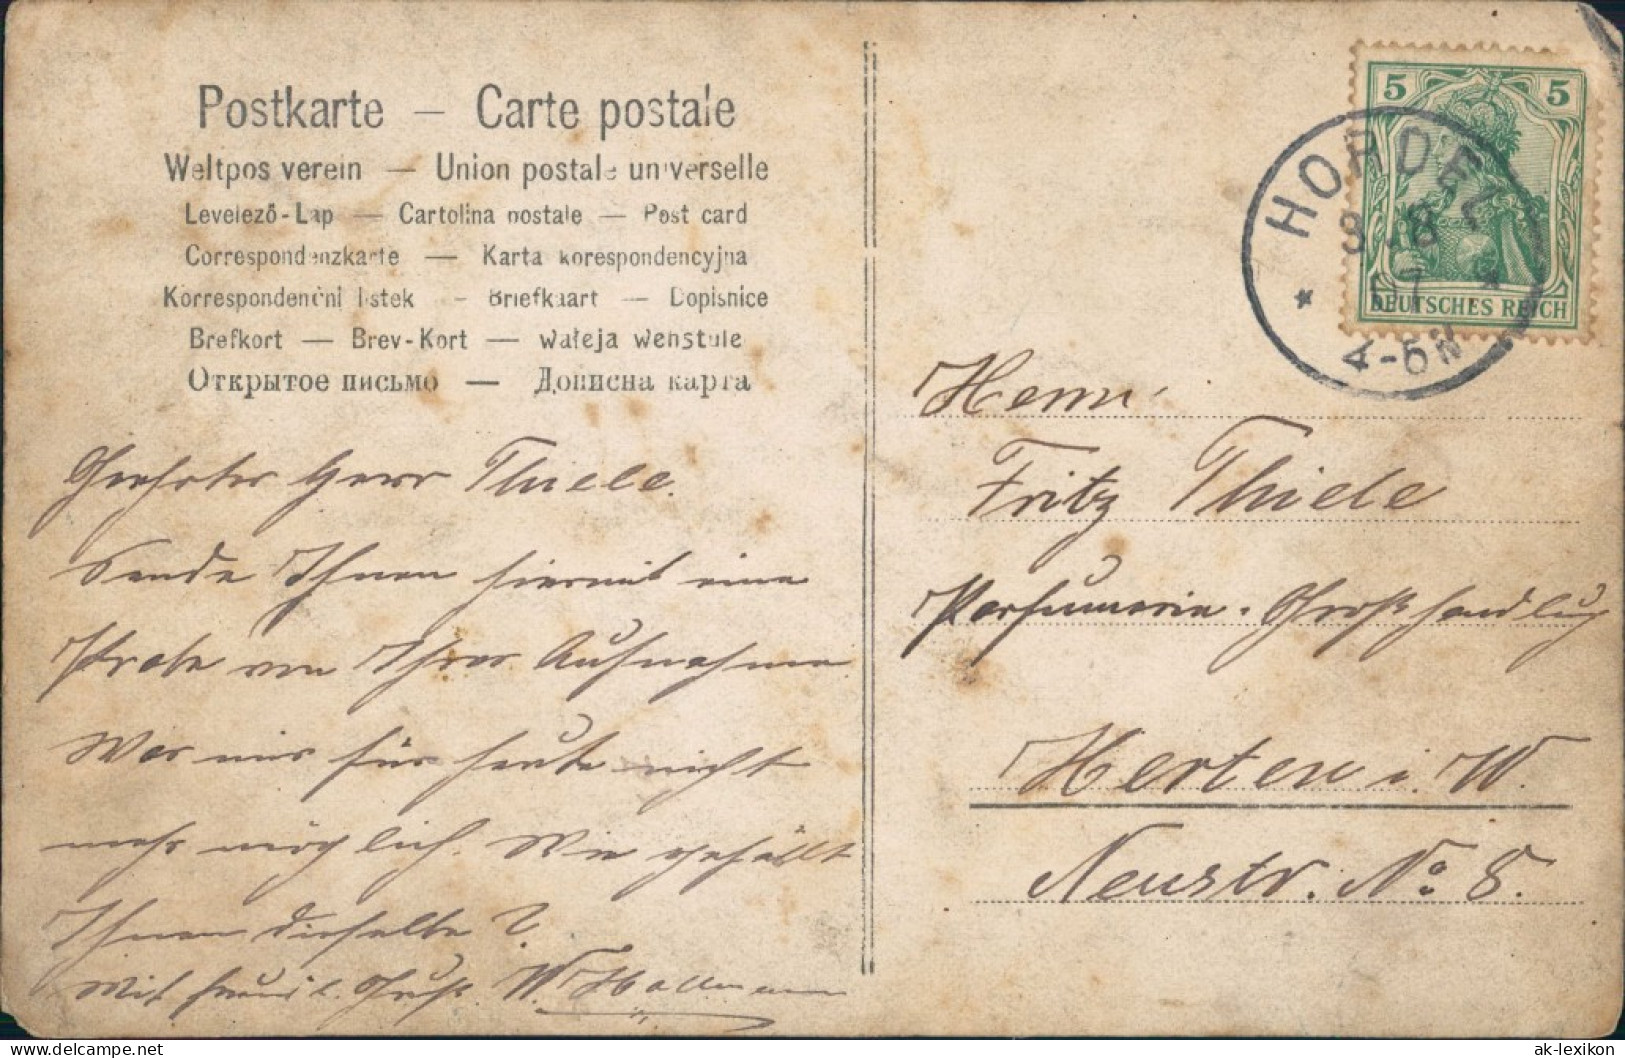 Postkarte — Carte postale
Weltpos verein — Union postale universelle
Levelező-Lap — Cartolina postale — Post card
Correspondenzkarte — Karta korespondencyjna
Korrespondenční listek — Briefkaart — Dopisnice
Brefkort — Brev-Kort — Wałeja Wenstule
Открытое письмо — Дописна карта
Geehrter Herr Thiele.
Sende Ihnen hiermit eine
Probe von Ihrer Aufnahme
War mir für heute nicht
mehr möglich. Wie gefällt
Ihnen dieselbe?
Mit freundl. Gruß W. Hallmann
5 5
DEUTSCHES REICH
HORDEL
3.8
07
* *
4-5N
Herrn
Fritz Thiele
Parfumerie-Großhandlug
Herten i. W.
Neustr. No 8.
ak-lexikon.com
ak-lexikon